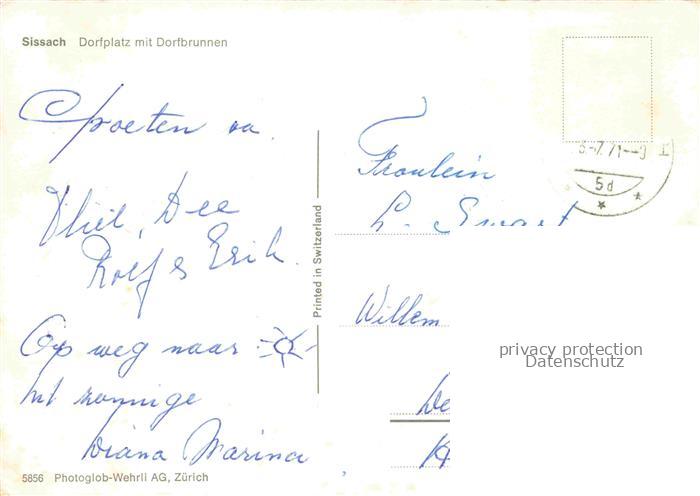 Sissach Dorfplatz mit Dorfbrunnen
Groeten va.
Thiel, Dee
Rolf & Erik.
Op weg naar
het zonnige
Diana Marina
5856 Photoglob-Wehrli AG, Zürich
Printed in Switzerland
7.71--9
5d
Fraulein
L. Smart
Willem
De
privacy protection
Datenschutz